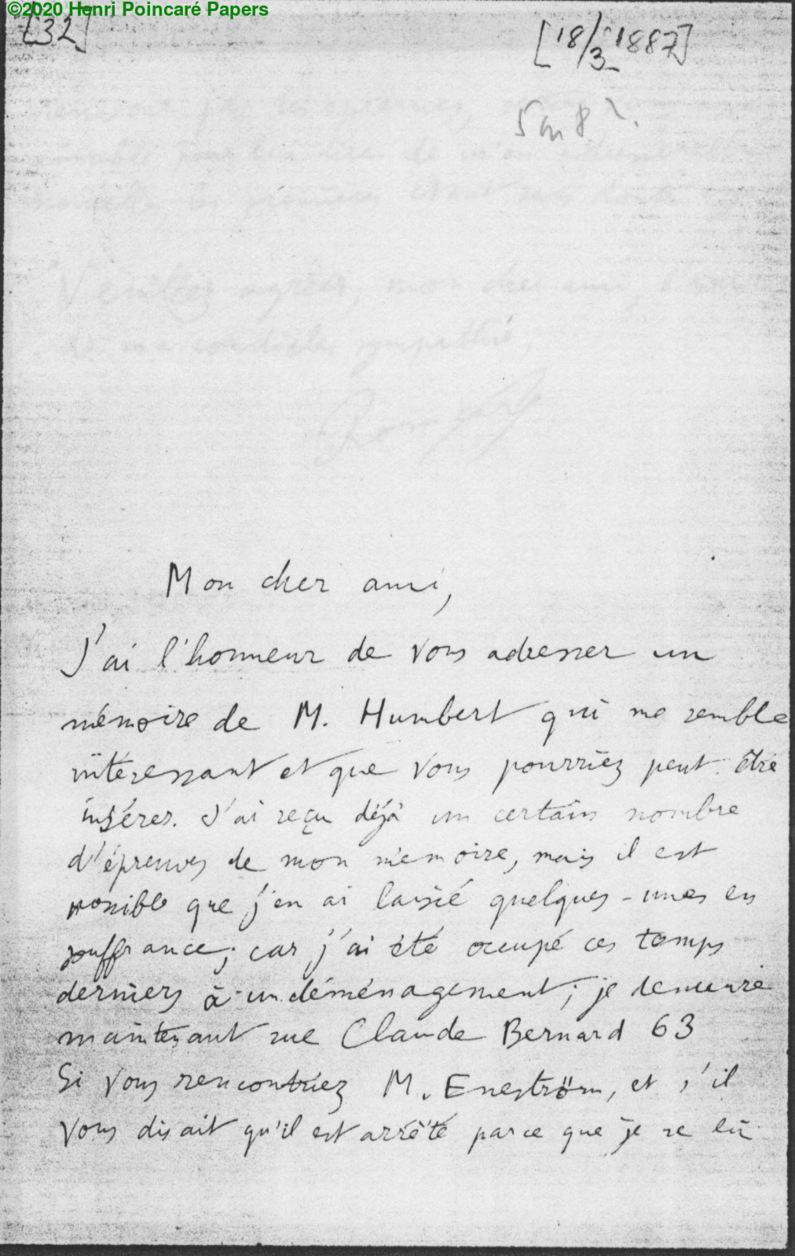 ©2020 Henri Poincaré Papers
[32]
[18/3 1887]
Veuillez agréer, mon cher ami, l'
de ma cordiale sympathie,
Poincaré
Mon cher ami,
J'ai l'honneur de vous adresser un
mémoire de M. Humbert qui me semble
intéressant et que vous pourriez peut être
insérer. J'ai reçu déjà un certain nombre
d'épreuves de mon mémoire, mais il est
possible que j'en ai laissé quelques-unes en
souffrance; car j'ai été occupé ces temps
derniers à un déménagement; je demeure
maintenant rue Claude Bernard 63
Si vous rencontriez M. Eneström, et s'il
vous disait qu'il est arrêté parce que je ne lui